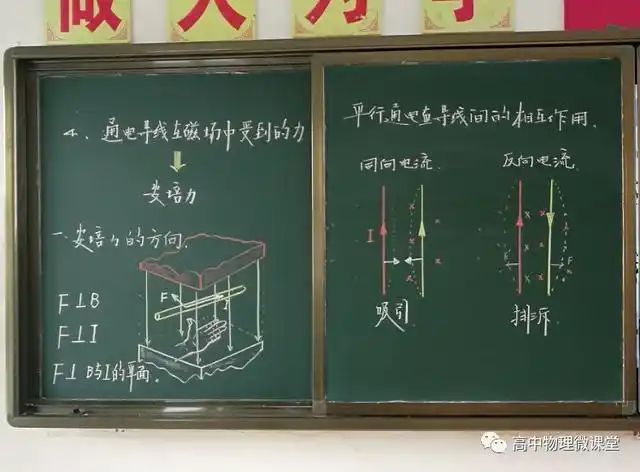 做人为学
4、通电导线在磁场中受到的力
安培力
一.安培力的方向.
F
F⊥B
F⊥I
F⊥B与I的平面.
平行通电直导线间的相互作用.
同向电流 反向电流
I
F F
吸引 排斥
高中物理微课堂